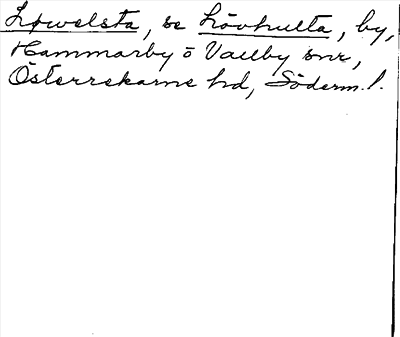 Løwelsta, se Lövhulta, by,
Hammarby o Vallby snr,
Österrekarne hd, Söderm.l.